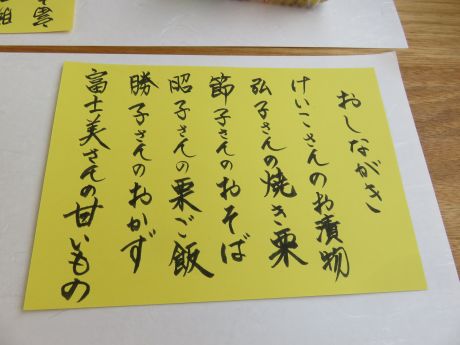 おしながき
けいこさんのお漬物
弘子さんの焼き栗
節子さんのおそば
昭子さんの栗ご飯
勝子さんのおかず
富士美さんの甘いもの